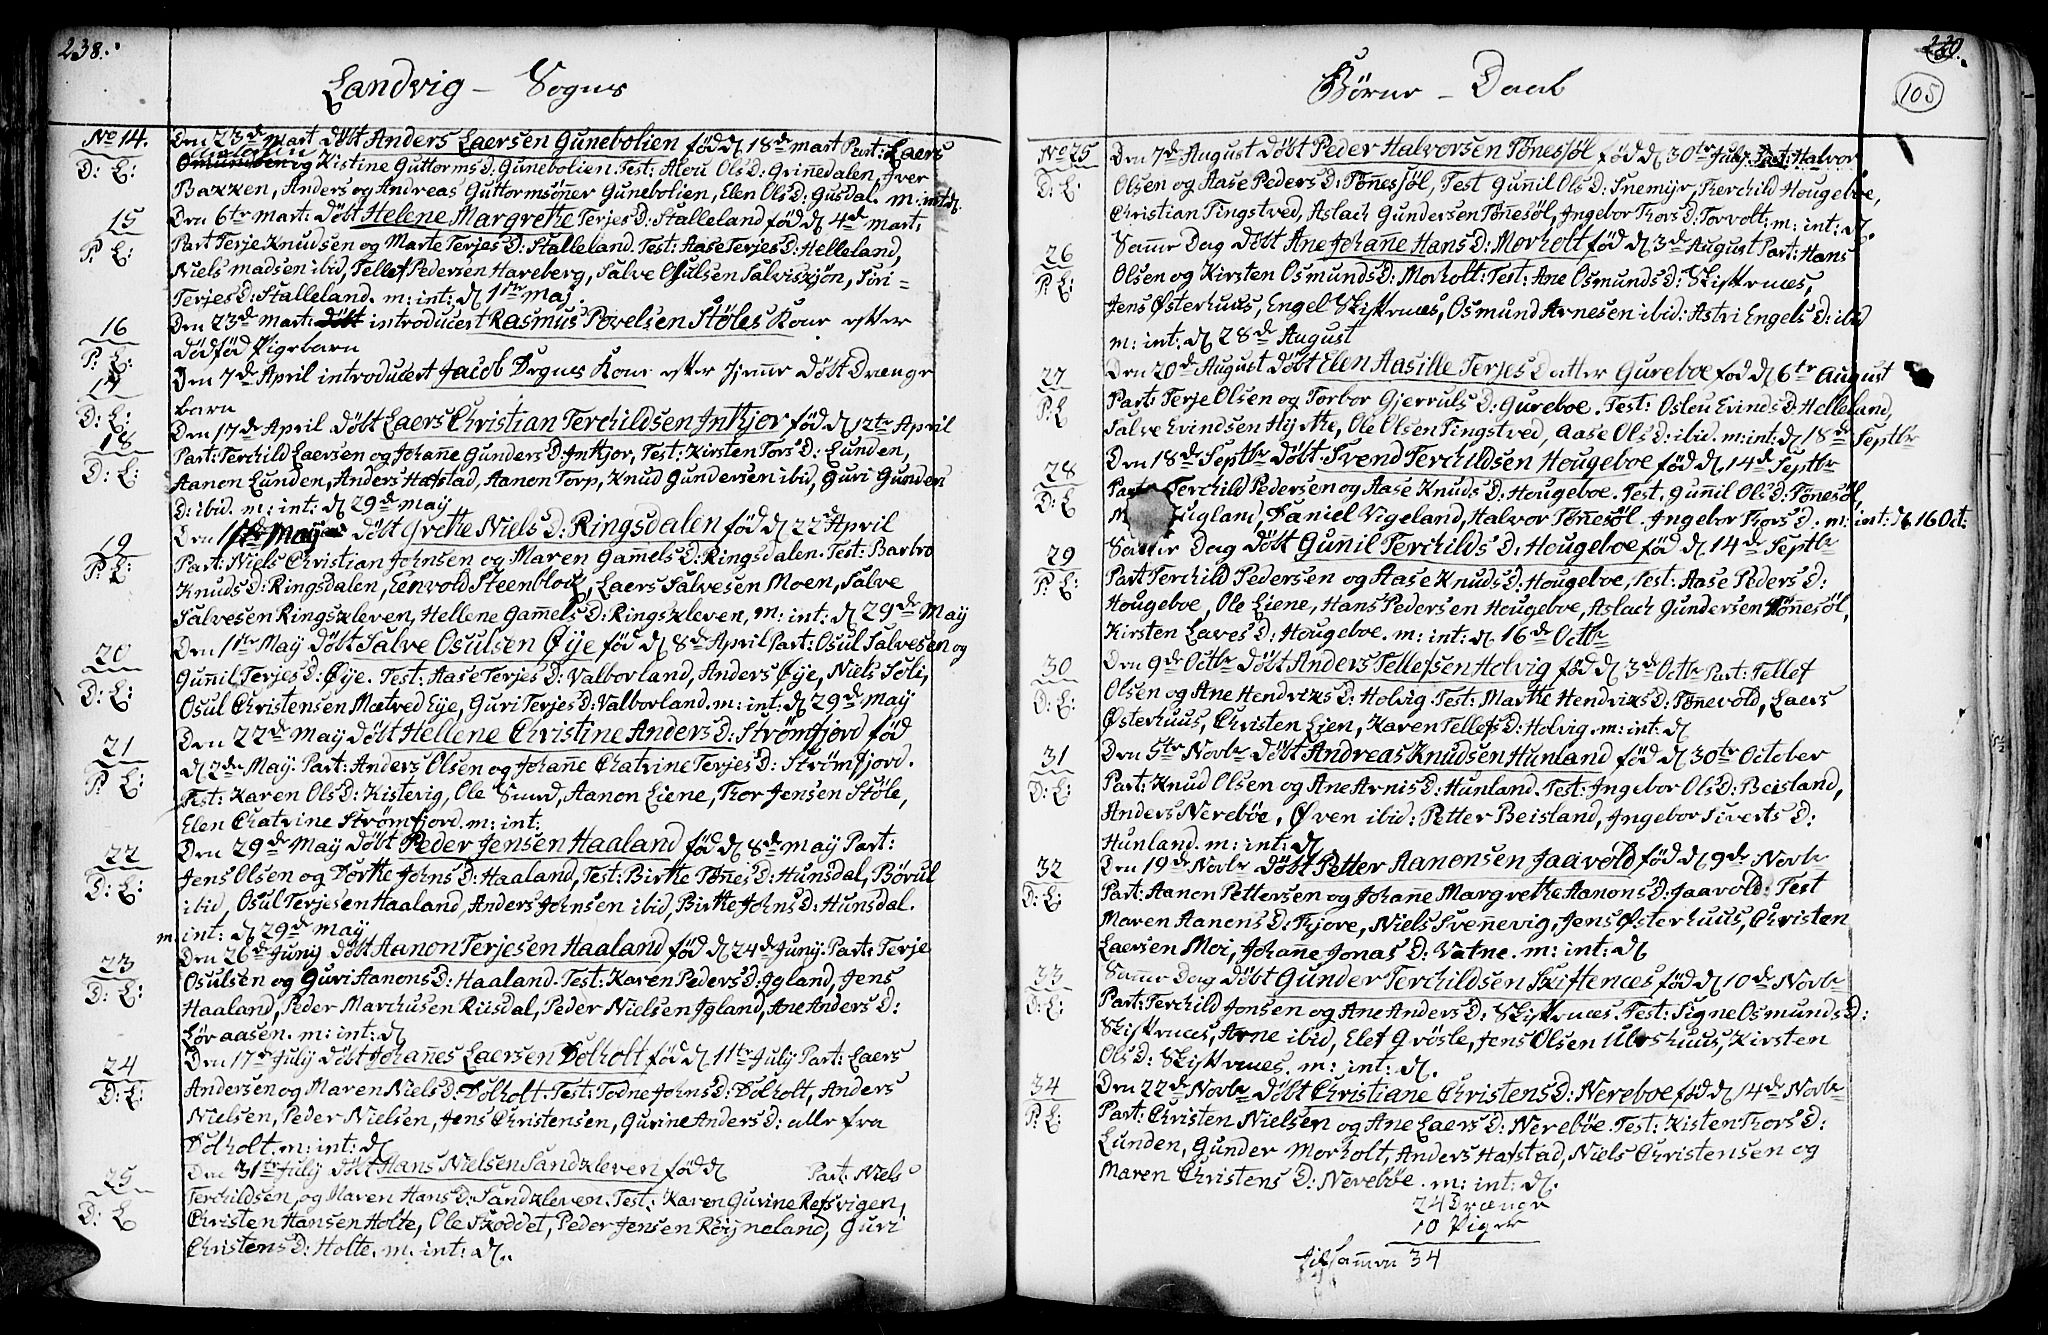 238.
Landvig – Sogns
No 14. Den 23de Mart döbt Anders Laersen Gunebolien föd d. 18de mart Part: Laers
D: E: Kistine Guttorms D: Gunebolien. Test: Alou Ols D: Grinnedalen, Iver
Baxken, Anders og Andreas Guttormsönner Gunebolien, Elen Ols D: Gusdal. m: int: d.
15 Den 6te mart: döbt Helene Margrethe Terjes D: Stalleland föd d. 4de mart,
P: E: Part Terje Knudsen og Marte Terjes D: Stalleland. Test: Aase Terjes D: Helleland,
Niels Madsen ibid, Tellef Pedersen Hareberg, Salve Osulsen Salvisxjön, Siri –
Terjes D: Stalleland. m: int: d. 1ste May.
16 Den 23de Mart: döbt introducert Rasmus Povelsen Stöles Kone efter
P: E: dödföd Pigebarn
17 Den 7de April introducert Jacob Degnes Kone efter hjemme döbt Drænge
D: E: barn
18 Den 17de April döbt Laers Christian Terchildsen Inthjor föd d. 12te April
D: E: Part: Terchild Laersen og Johanne Gunders D: Inthjor, Test: Kirsten Tors D: Lunden,
Aanon Lunden, Anders Hafstad, Aanon Torp, Knud Gundersen ibid, Guri Gunders
D: ibid. m: int: d. 29de may
19 Den 1ste May döbt Grethe Niels D: Ringsdalen föd d. 22de April
P: E: Part: Niels Christian Johnsen og Maren Gamels D: Ringsdalen. Test: Barbro
Knuds D: Ringsdalen, Eenvold Steenblok, Laers Salvesen Moen, Salve
Salvesen Ringsxleven, Hellene Gamels D: Ringsxleven, m: int: d. 29de May
20 Den 1ste May döbt Salve Osulsen Øije föd d. 8de April Part: Osul Salvesen og
D: E: Gunnil Terjes D: Øije. Test: Aase Terjes D: Valborland, Anders Øije, Niels Soli,
Osul Christensen Mætved Eije, Guri Terjes D: Valborland. m: int: d. 29de May
21 Den 22de May döbt Hellene Christine Anders D: Strömfjord föd
P: E: d. 2de May. Part: Anders Olsen og Johanne Chatrine Terjes D: Strömfjord.
Test: Karen Ols D: Kistevig, Ole Sund, Aanon Liene, Thor Jensen Støle,
Elen Chatrine Strömfjord. m: int:
22 Den 29de May döbt Peder Jensen Haaland föd d. 8de may Part:
D: E: Jens Olsen og Dorthe Johns D: Haaland, Test: Birthe Tönnes D: Hunsdal, Börul
ibid, Osul Terjesen Haaland, Anders Johnsen ibid, Birthe Johns D: Hunsdal.
m: int: d. 29de may
23 Den 26de Junij döbt Aanon Terjesen Haaland föd d. 24de Junij. Part: Terje
D: E: Osulsen og Guri Aanons D: Haaland. Test: Karen Peders D: Igland, Jens
Haaland, Peder Marchusen Riisdal, Peder Nielsen Igland, Ane Anders D:
Löraasen. m: int: d.
24 Den 17de Julij döbt Johannes Laersen Dolholt föd d. 11te Julij Part: Laers
D: E: Andersen og Maren Niels D: Dolholt. Test: Todne Johns D: Dolholt, Anders
Nielsen, Peder Nielsen, Jens Christensen, Gurine Anders D: alle fra
Dolholt. m: int: d.
25 Den 31te Julij döbt Hans Nielsen Sandxleven föd d. Part: Niels
D: E Terchildsen, og Maren Hans D: Sandxleven. Test: Karen Gurine Refsvigen,
Christen Hansen Holte, Ole Skoddet, Peder Jensen Röijneland, Guri
Christens D: Holte. m: int: d.
105
Börne – Daab
No 25 Den 7de August döbt Peder Halvorsen Tönesöl föd d. 30te Julj. Part: Halvor
D: E: Olsen og Aase Peders D: Tönnesöl, Test Gunnil Ols D: Snemyr, Terchild Hougeboe,
Christian Tingstved, Aslach Gundersen Tönnesöl, Ingebor Thors D: Torvolt: m: int: d.
26 Samme Dag döbt Ane Johanne Hans D: Morholt föd d. 3de August Part: Hans
P: E: Olsen og Kirsten Osmunds D: Morholt: Test: Ane Osmunds D: Skiftenæs,
Jens Østerhuus, Engel Skiftenæs, Osmund Arnesen ibid: Astri Engels D: ibid
m: int: d. 28de August
27 Den 20de August döbt Elen Aasille Terjes Datter Gureboe föd d. 6te August
P: E Part: Terje Olsen og Torbor Gjeruls D: Gureboe. Test: Oslou Evinds D: Helleland,
Salve Evindsen Hijrthe, Ole Olsen Tingstved, Aase Ols D: ibid. m: int: d. 18de Septbr
28 Den 18de Septbr döbt Svend Terchildsen Hougeboe föd d. 14de Septbr
D: E Part Terchild Pedersen og Aase Knuds D: Hougeboe. Test. Gunnil Ols D: Tönesöl,
ugland, Daniel Vigeland, Halvor Tönnesöl. Ingebor Thors D. m: int: d. 16 Oct:
29 Samme Dag döbt Gunnil Terchilds D: Hougeboe föd d. 14de Septbr
P: E: Part Terchild Pedersen og Aase Knuds D: Hougeboe, Test: Aase Peders D:
Hougeboe, Ole Liene, Hans Pedersen Hougeboe, Aslach Gundersen Tönnesöl,
Kirsten Laves D: Hougeboe. m: int: d. 16de Octbr
30 Den 9de Octbr döbt Anders Tellefsen Holvig föd d. 3de Octbr Part: Tellef
D: E: Olsen og Ane Hendrixs D: Holvig. Test: Marthe Hendrixs D: Tönnevold, Laers
Østerhuus, Christen Lien, Karen Tellefs D: Holvig. m: int: d.
31 Den 5te Novbr döbt Andreas Knudsen Hunland föd d. 30te October
D: E: Part: Knud Olsen og Ane Arnis D: Hunland. Test: Ingebor Ols D: Beisland,
Anders Nereböe, Øven ibid: Petter Beisland, Ingebor Siverts D:
Hunland. m: int: d.
32 Den 19de Novbr döbt Petter Aanonsen Jaavold föd d. 9de Novbr
D: E: Part: Aanon Pettersen og Johanne Margrethe Aanons D: Jaavold: Test
Maren Aanons D: Fjore, Niels Svennevig, Jens Østerhuus, Christen
Laersen Moi, Johanne Jonas D: Vatne. m: int: d.
33 Samme Dag döbt Gunder Terchildsen Skiftenæs föd d. 10de Novbr
D: E: Part: Terchild Jonsen og Ane Anders D: Skiftenæs. Test: Signe Osmunds D:
Skiftenæs, Arne ibid, Elef Gröste, Jens Olsen Ubershuus, Kirsten
Ols D: Skiftenæs. m: int: d.
34 Den 22de Novbr döbt Christiane Christens D: Nereboe föd d. 14de Novbr
P: E: Part: Christen Nielsen og Ane Laers D: Nereböe. Test: Kisten Thors D:
Lunden, Gunder Morholt, Anders Hafstad, Niels Christensen og
Maren Christens D: Nereböe. m: int: d:
24 Drænge
10 Piger
Tilsamen 34